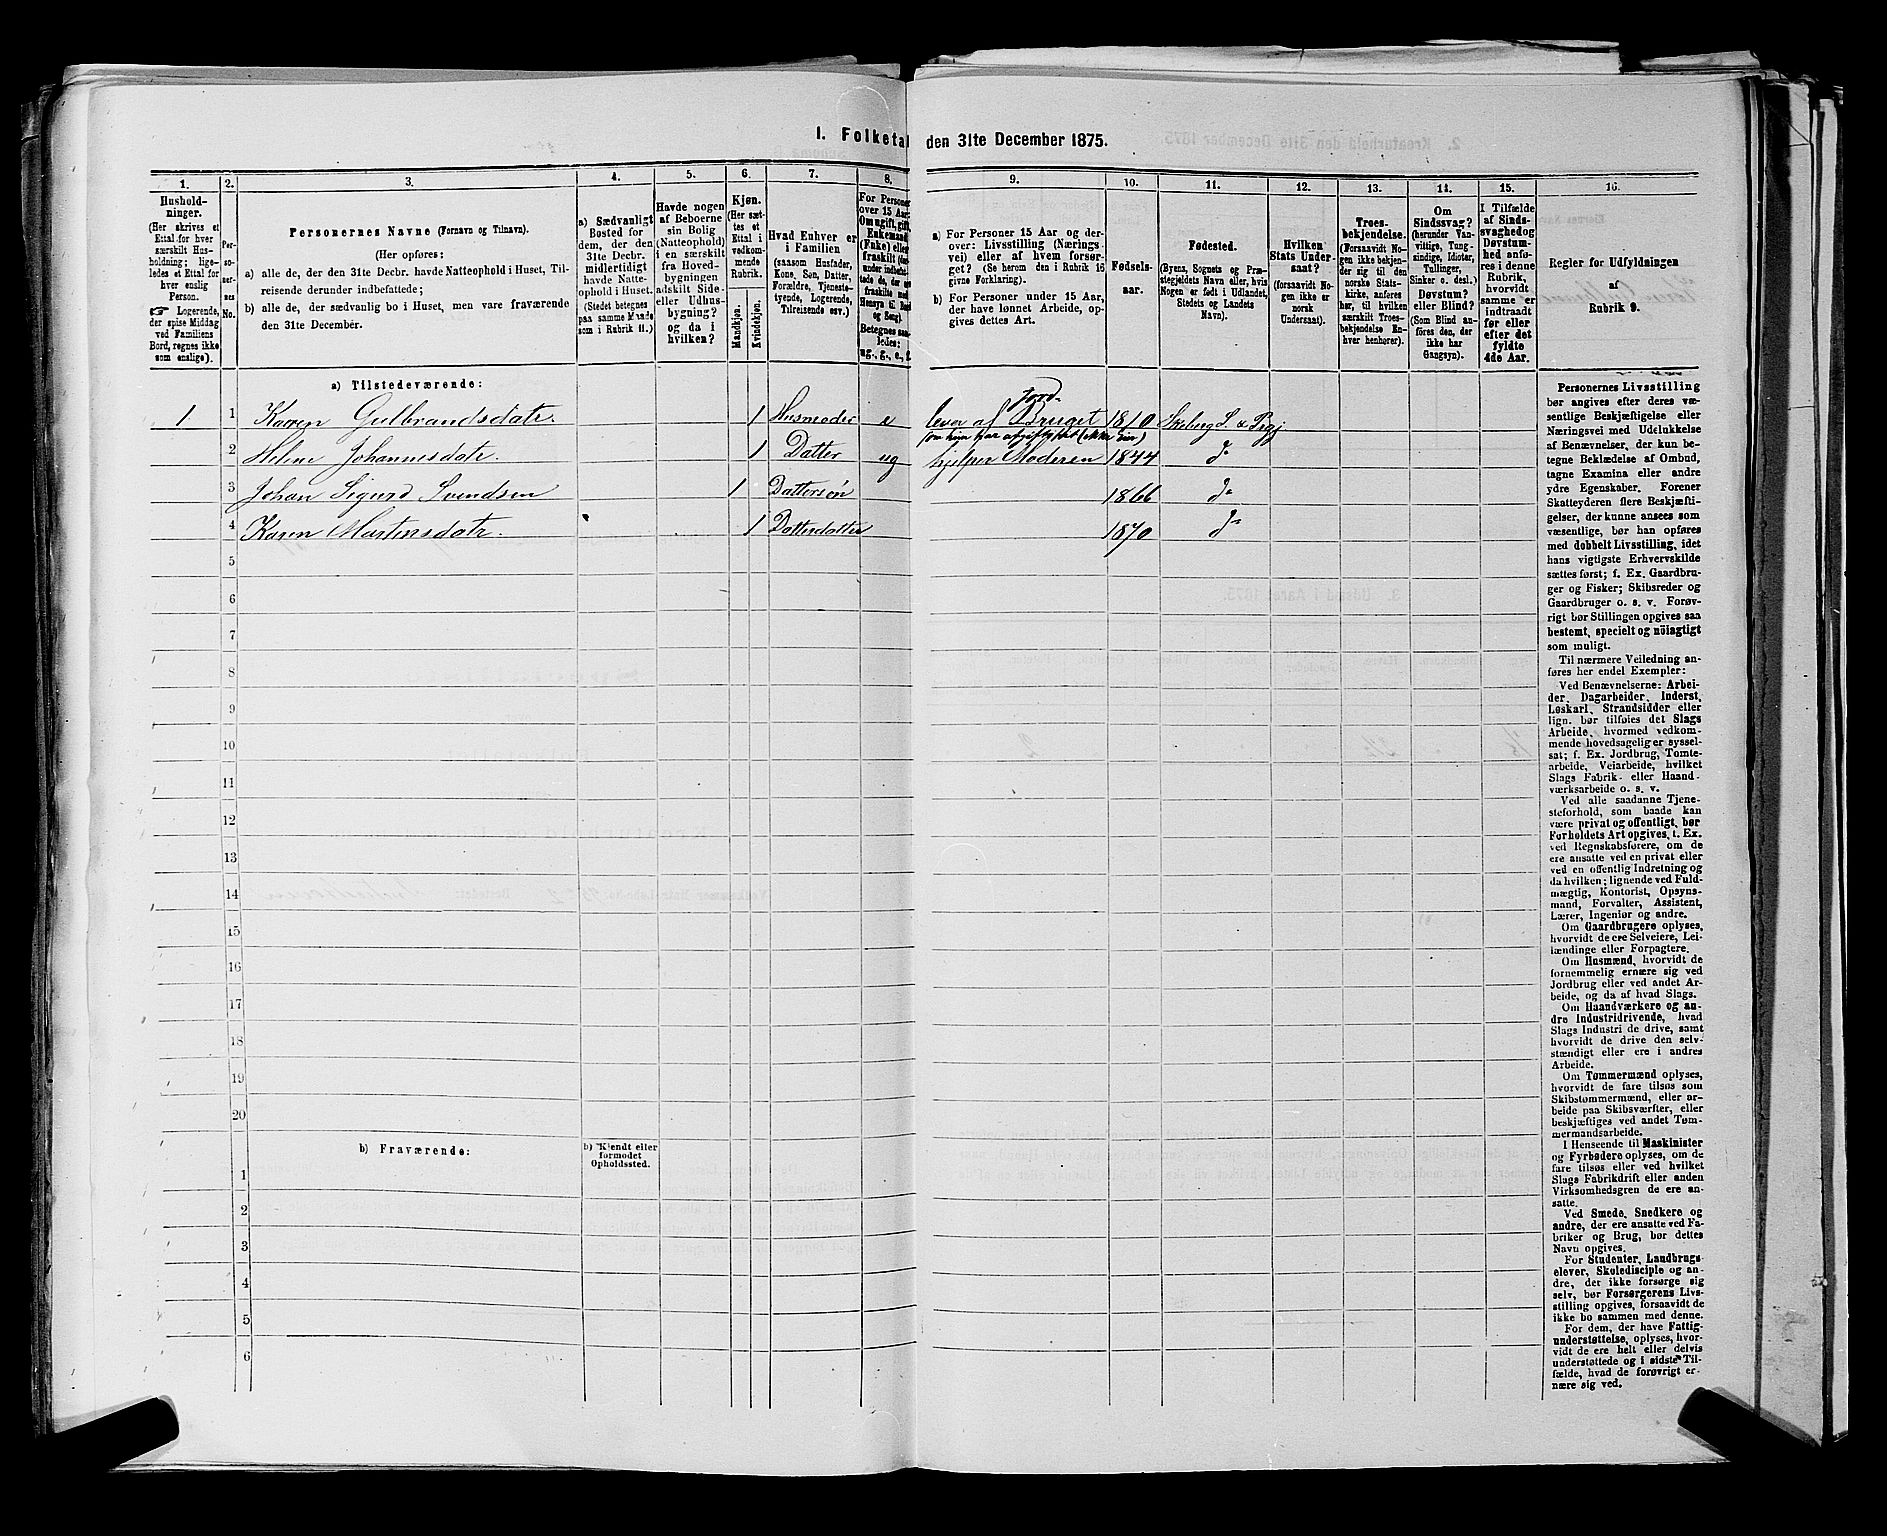 I. Folketal den 31te December 1875.
1.
Hushold-
ninger.
(Her skrives et
Ettal for hver
særskilt Hus-
holdning; lige-
ledes et Ettal for
hver enslig
Person.
☞ Logerende,
der spise Middag
ved Familiens
Bord, regnes ikke
som enslige).
2.
Per-
so-
ner-
nes
No.
3.
Personernes Navne (Fornavn og Tilnavn).
(Her opføres:
a) alle de, der den 31te Decbr. havde Natteophold i Huset, Til-
reisende derunder indbefattede;
b) alle de, der sædvanlig bo i Huset, men vare fraværende
den 31te December.
4.
a) Sædvanligt
Bosted for
dem, der den
31te Decbr.
midlertidigt
havde Natte-
ophold i Huset.
(Stedet betegnes
paa samme Maade
som i Rubrik 11.)
5.
Havde nogen
af Beboerne
sin Bolig
(Natteophold)
i en særskilt
fra Hoved-
bygningen
adskilt Side-
eller Udhus-
bygning?
og da i
hvilken?
6.
Kjøn.
(Her sæt-
tes et
Ettal i
vedkom-
mende
Rubrik.
Mandkjøn.
Kvindekjøn.
7.
Hvad Enhver er
i Familien
(saasom Husfader,
Kone, Søn, Datter,
Forældre, Tjeneste-
tyende, Logerende,
Tilreisende osv.)
8.
For Personer
over 15 Aar:
Om ugift, gift,
Enkemand
(Enke) eller
fraskilt
Betegnes saa-
ledes:
ug., g., e., f.
9.
a) For Personer 15 Aar og der-
over: Livsstilling (Nærings-
vei) eller af hvem forsør-
get? (Se herom den i Rubrik 16
givne Forklaring).
b) For Personer under 15 Aar,
der have lønnet Arbeide, op-
gives dettes Art.
10.
Fødsels-
aar.
11.
Fødested.
(Byens, Sognets og Præ-
stegjeldets Navn eller, hvis
Nogen er født i Udlandet,
Stedets og Landets
Navn).
12.
Hvilken
Stats Under-
saat?
(forsaavidt No-
gen ikke er
norsk
Undersaat).
13.
Troes-
bekjendelse.
(Forsaavidt No-
gen ikke bekjen-
der sig til den
norske Stats-
kirke, anføres
her, til hvilken
særskilt Troes-
bekjendelse En-
hver henhører).
14.
Om
Sindssvag?
(herunder Van-
vittige, Tung-
sindige, Idioter,
Tullinger,
Sinker o. desl.)
Døvstum?
eller Blind?
(Som Blind an-
føres den, der
ikke har
Gangsyn).
15.
I Tilfælde
af Sinds-
svaghed og
Døvstum-
hed anfø-
res i denne
Rubrik,
hvorvidt
samme er
indtraadt
før eller
efter det
fyldte
4de Aar.
16.
Regler for Udfyldningen
af
Rubrik 9.
a) Tilstedeværende:
1 1 Karen Gulbrandsdatr. 1 Husmoder e lever af Jord-Bruget 1810 Skeberg S. & Prgj.
2 Heline Johannesdatr. 1 Datter ug hjelper Moderen 1844 do
3 Johan Sigurd Svendsen 1 Dattersøn 1866 do
4 Karen Martinsdatr. 1 Datterdatter 1870 do
5
6
7
8
9
10
11
12
13
14
15
16
17
18
19
20
b) Fraværende:
b) Kjendt eller
formodet
Opholdssted.
1
2
3
4
5
6
Personernes Livsstilling
bør angives efter deres væ-
sentlige Beskjæftigelse eller
Næringsvei med Udelukkelse
af Benævnelser, der kun be-
tegne Beklædelse af Ombud,
tagne Examina eller andre
ydre Egenskaber. Forener
Skatteyderen flere Beskjæfti-
gelser, der kunne ansees som
væsentlige, bør han opføres
med dobbelt Livsstilling, idet
hans vigtigste Erhvervskilde
sættes først; f. Ex. Gaardbru-
ger og Fisker; Skibsreder og
Gaardbruger o. s. v. Forøv-
rigt bør Stillingen opgives saa
bestemt, specielt og nöiagtigt
som muligt.
Til nærmere Veiledning an-
føres her endel Exempler:
Ved Benævnelserne: Arbei-
der, Dagarbeider, Inderst,
Løskarl, Strandsidder eller
lign. bør tilføies det Slags
Arbeide, hvormed vedkom-
mende hovedsagelig er syssel-
sat; f. Ex. Jordbrug, Tomte-
arbeide, Veiarbeide, hvilket
Slags Fabrik- eller Haand-
værksarbeide o. s. v.
Ved alle saadanne Tjene-
steforhold, som baade kan
være privat og offentligt, bør
Forholdets Art opgives, t. Ex.
ved Regnskabsførere, om de
ere ansatte ved en privat eller
ved en offentlig Indretning og
da hvilken; lignende ved Fuld-
mægtig, Kontorist, Opsyns-
mand, Forvalter, Assistent,
Lærer, Ingeniør og andre.
Om Gaardbrugere oplyses,
hvorvidt de ere Selveiere, Lei-
lændinge eller Forpagtere.
Om Husmænd, hvorvidt de
fornemmelig ernære sig ved
Jordbrug eller ved andet Ar-
beide, og da af hvad Slags.
Om Haandværkere og an-
dre Industridrivende, hvad
Slags Industri de drive, samt
hvorvidt de drive den selv-
stændigt eller ere i andres
Arbeide.
Om Tømmermænd oplyses,
hvorvidt de fare tilsøs som
Skibstømmermænd, eller ar-
beide paa Skibsværfter, eller
beskjæftiges ved andet Tøm-
mermandsarbeide.
I Henseende til Maskinister
og Fyrbødere oplyses, om de
fare tilsøs eller ved hvilket
Slags Fabrikdrift eller anden
Virksomhedsgren de ere an-
satte.
Ved Smede, Snedkere og
andre, der ere ansatte ved Fa-
briker og Brug, bør dettes
Navn opgives.
For Studenter, Landbrugs-
elever, Skoledisciple og an-
dre, der ikke forsørge sig
selv, bør Forsørgerens Livs-
stilling opgives, forsaavidt de
ikke bo sammen med denne.
For dem, der have Fattig-
understøttelse, oplyses, hvor-
vidt de ere helt eller delvis
understøttede og i sidste Til-
fælde, hvad de forøvrigt er-
nære sig ved.